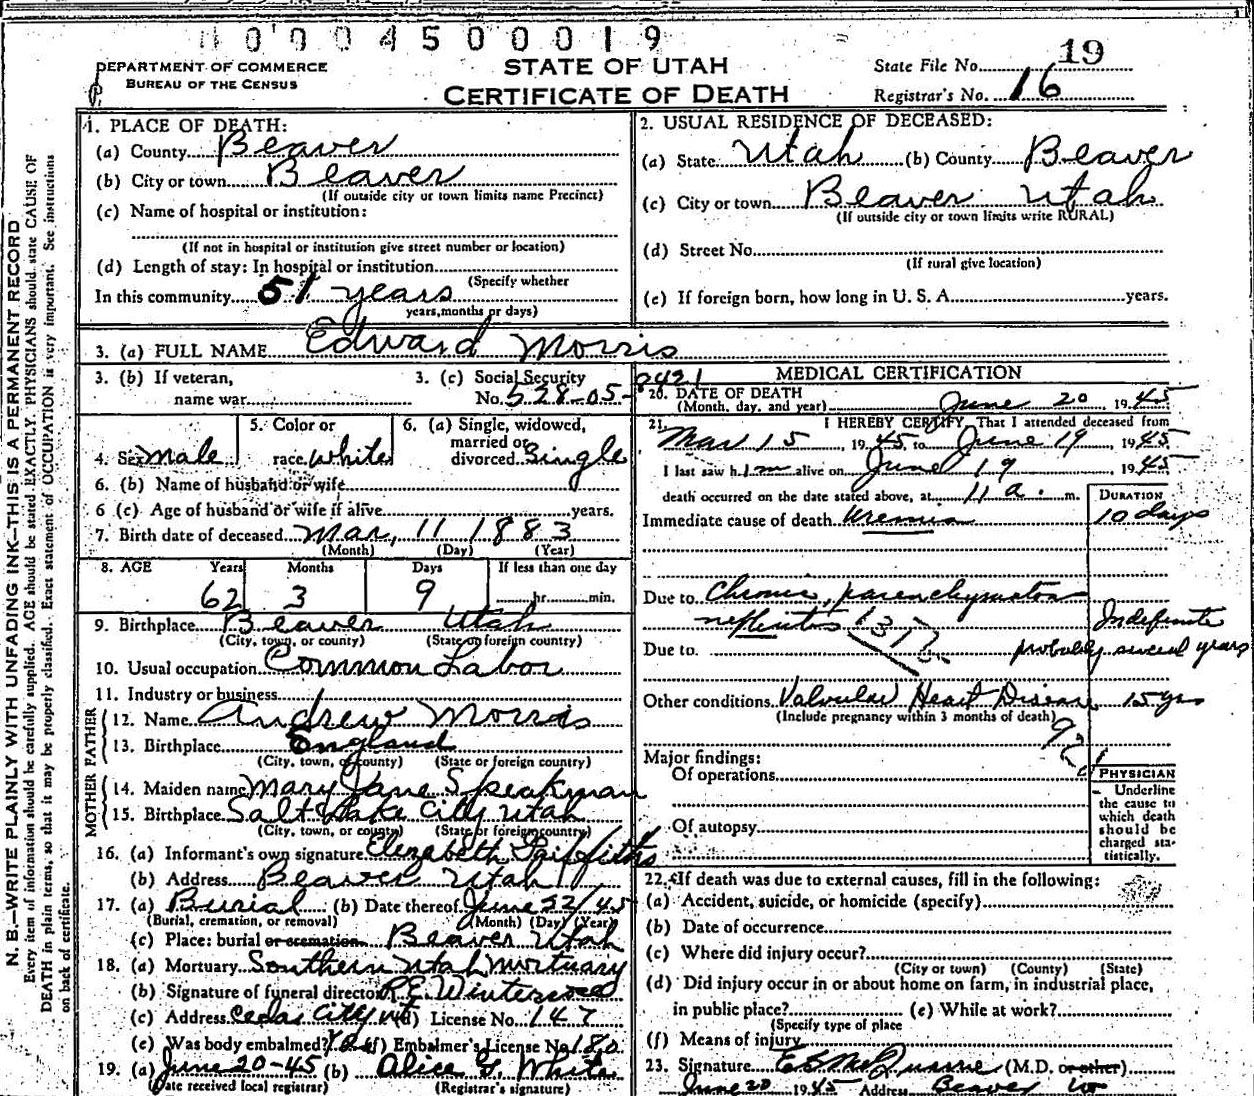 0004500019
DEPARTMENT OF COMMERCE
BUREAU OF THE CENSUS
STATE OF UTAH
CERTIFICATE OF DEATH
State File No. 19
Registrar's No. 16
N. B.—WRITE PLAINLY WITH UNFADING INK—THIS IS A PERMANENT RECORD
Every item of information should be carefully supplied. AGE should be stated EXACTLY. PHYSICIANS should state CAUSE OF
DEATH in plain terms, so that it may be properly classified. Exact statement of OCCUPATION is very important. See instructions
on back of certificate.
1. PLACE OF DEATH:
(a) County Beaver
(b) City or town Beaver
(If outside city or town limits name Precinct)
(c) Name of hospital or institution:
(If not in hospital or institution give street number or location)
(d) Length of stay: In hospital or institution
(Specify whether
In this community 51 years
years, months or days)
2. USUAL RESIDENCE OF DECEASED:
(a) State Utah (b) County Beaver
(c) City or town Beaver Utah
(If outside city or town limits write RURAL)
(d) Street No.
(If rural give location)
(e) If foreign born, how long in U. S. A. years.
3. (a) FULL NAME Edward Morris
3. (b) If veteran,
name war
3. (c) Social Security
No. 528-05-0421
4. Sex Male
5. Color or
race White
6. (a) Single, widowed,
married or
divorced Single
6. (b) Name of husband or wife
6 (c) Age of husband or wife if alive years.
7. Birth date of deceased Mar. 11 1883
(Month) (Day) (Year)
8. AGE Years Months Days If less than one day
62 3 9 hr. min.
9. Birthplace Beaver Utah
(City, town, or county) (State or foreign country)
10. Usual occupation Common Labor
11. Industry or business
FATHER
12. Name Andrew Morris
13. Birthplace England
(City, town, or county) (State or foreign country)
MOTHER
14. Maiden name Mary Jane Speakman
15. Birthplace Salt Lake City Utah
(City, town, or county) (State or foreign country)
16. (a) Informant's own signature Elizabeth Griffiths
(b) Address Beaver Utah
17. (a) Burial (b) Date thereof June 22/45
(Burial, cremation, or removal) (Month) (Day) (Year)
(c) Place: burial or cremation Beaver Utah
18. (a) Mortuary Southern Utah Mortuary
(b) Signature of funeral director R.E. Winterrose
(c) Address Cedar City Ut (d) License No. 147
(e) Was body embalmed? Yes (f) Embalmer's License No. 180
19. (a) June 20-45 (b) Alice G. White
(Date received local registrar) (Registrar's signature)
MEDICAL CERTIFICATION
20. DATE OF DEATH
(Month, day, and year) June 20, 1945
21. I HEREBY CERTIFY, That I attended deceased from
Mar 15, 1945 to June 19, 1945
I last saw him alive on June 19, 1945
death occurred on the date stated above, at 11 a. m.
DURATION
Immediate cause of death Uremia 10 days
Due to Chronic parenchymatous
nephritis 131 Indefinite
Due to probably several years
Other conditions Valvular Heart Disease 15 yrs
(Include pregnancy within 3 months of death)
Major findings:
Of operations
Of autopsy
PHYSICIAN
Underline
the cause to
which death
should be
charged sta-
tistically.
22. If death was due to external causes, fill in the following:
(a) Accident, suicide, or homicide (specify)
(b) Date of occurrence
(c) Where did injury occur?
(City or town) (County) (State)
(d) Did injury occur in or about home on farm, in industrial place,
in public place? (e) While at work?
(Specify type of place
(f) Means of injury
23. Signature (M.D. or other)
June 20 1945 Address Beaver